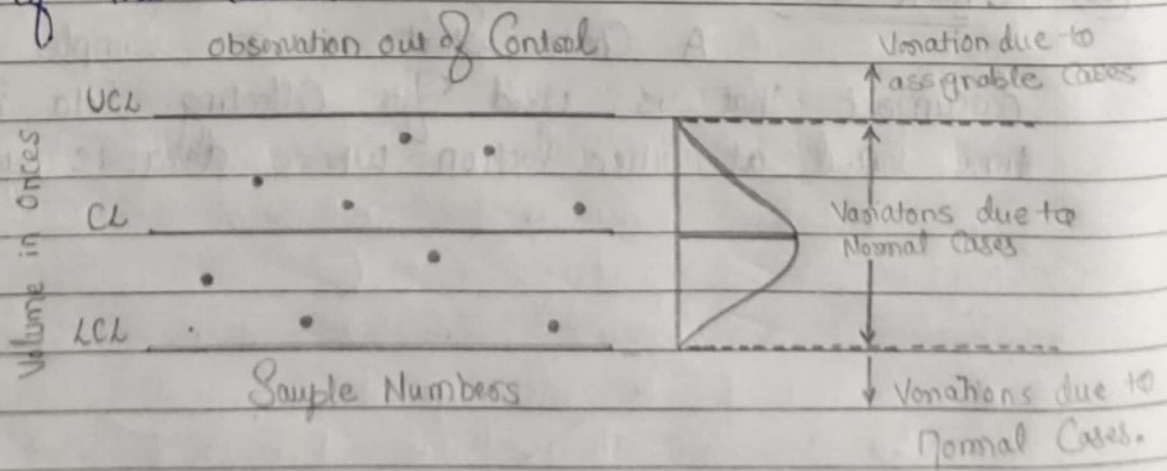 observation out of Control
Vonation due to
assgnable Cases
UCL
Volume in Onces
CL
Vasiatons due to
Normal Cases
LCL
Sauple Numbess
Vonations due to
normal Cases.